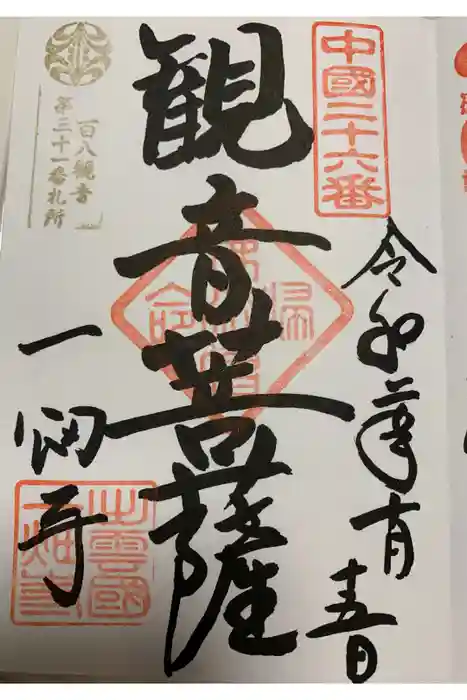 中國二十六番
令和
日
観音菩薩
一畑寺
出雲國
一畑寺
百八観音
第三十一番札所